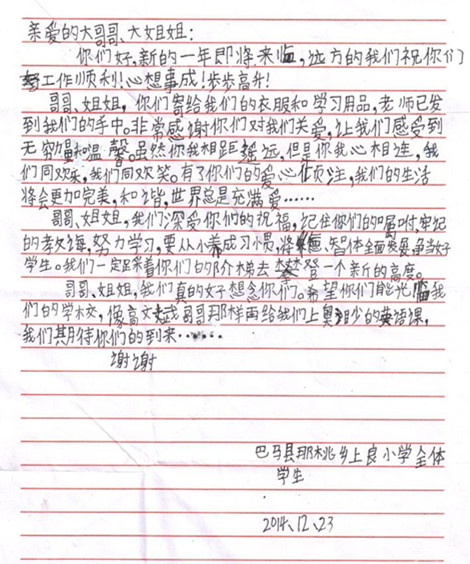 亲爱的大哥哥、大姐姐:
你们好,新的一年即将来临,远方的我们祝你们
工作顺利!心想事成!步步高升!
哥哥、姐姐,你们寄给我们的衣服和学习用品,老师已发
到我们的手中。非常感谢你们对我们关爱,让我们感受到
无穷温和温馨。虽然你我相距遥远,但是你我心相连,我
们同欢乐,我们同欢笑。有了你们的爱心倾注,我们的生活
将会更加完美,和谐,世界总是充满爱……
哥哥、姐姐,我们深受你们的祝福,记住你们的嘱咐,牢记
的教诲,努力学习,要从小养成习惯,将德、智体全面发展,争当好
学生。我们一定踩着你们的阶梯去攀登一个新的高度。
哥哥、姐姐,我们真的好想念你们。希望你们能光临我
们的学校,像高文哥哥那样再给我们上奥妙的英语课,
我们期待你们的到来……
谢谢
巴马县那桃乡上良小学全体
学生
2014、12、23